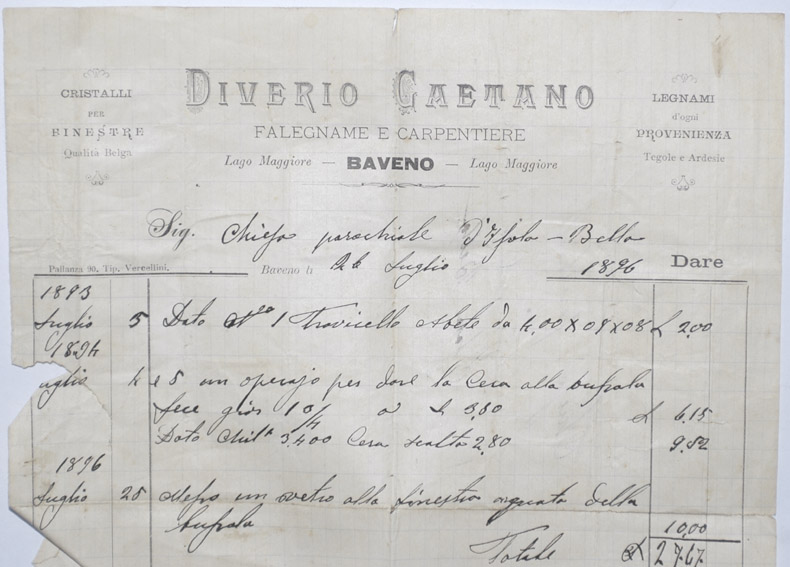 DIVERIO GAETANO
FALEGNAME E CARPENTIERE
Lago Maggiore — BAVENO — Lago Maggiore
CRISTALLI
PER
FINESTRE
Qualità Belga
LEGNAMI
d'ogni
PROVENIENZA
Tegole e Ardesie
Sig. Chiesa parochiale d'Isola-Bella
Pallanza 90. Tip. Vercellini.
Baveno li 26 Luglio 1896 Dare
1893
Luglio 5 Dato 1 Travicello Abete da 4,00 X 09 X 08 £ 2,00
1894
uglio 4 e 5 un operajo per dare la Cera alla
fece 10/4 a £ £ 6.15
Dato 3,400 Cera 2,80 9.52
1896
Luglio 25 Messo un vetro alla finestra della
10,00
Totale £ 27.67